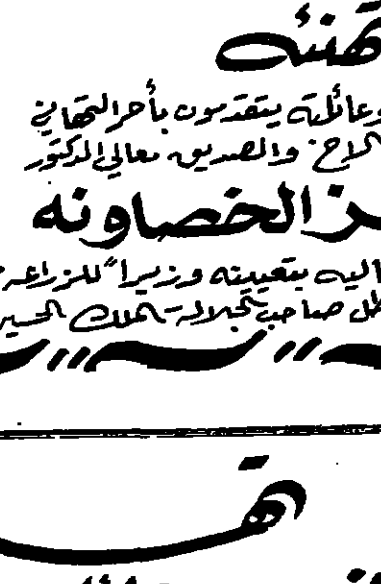 تهنئه
وعائلته يتقدمون بأحر التهاني
الاخ والصديق معالي الدكتور
الخصاونه
بتعيينه وزيراً للزراعه
صاحب الجلاله الملك الحسين